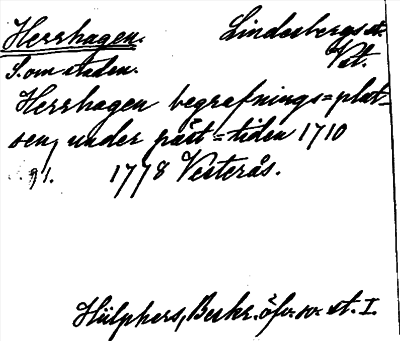 Herrhagen. Lindesbergs st.
Vstm.
S. om staden.
Herrhagen begrafnings=plat-
sen, under päst=tiden 1710
s. 91. 1778 Vesterås.
Hülphers, Beskr. öfv. sv. st. I.